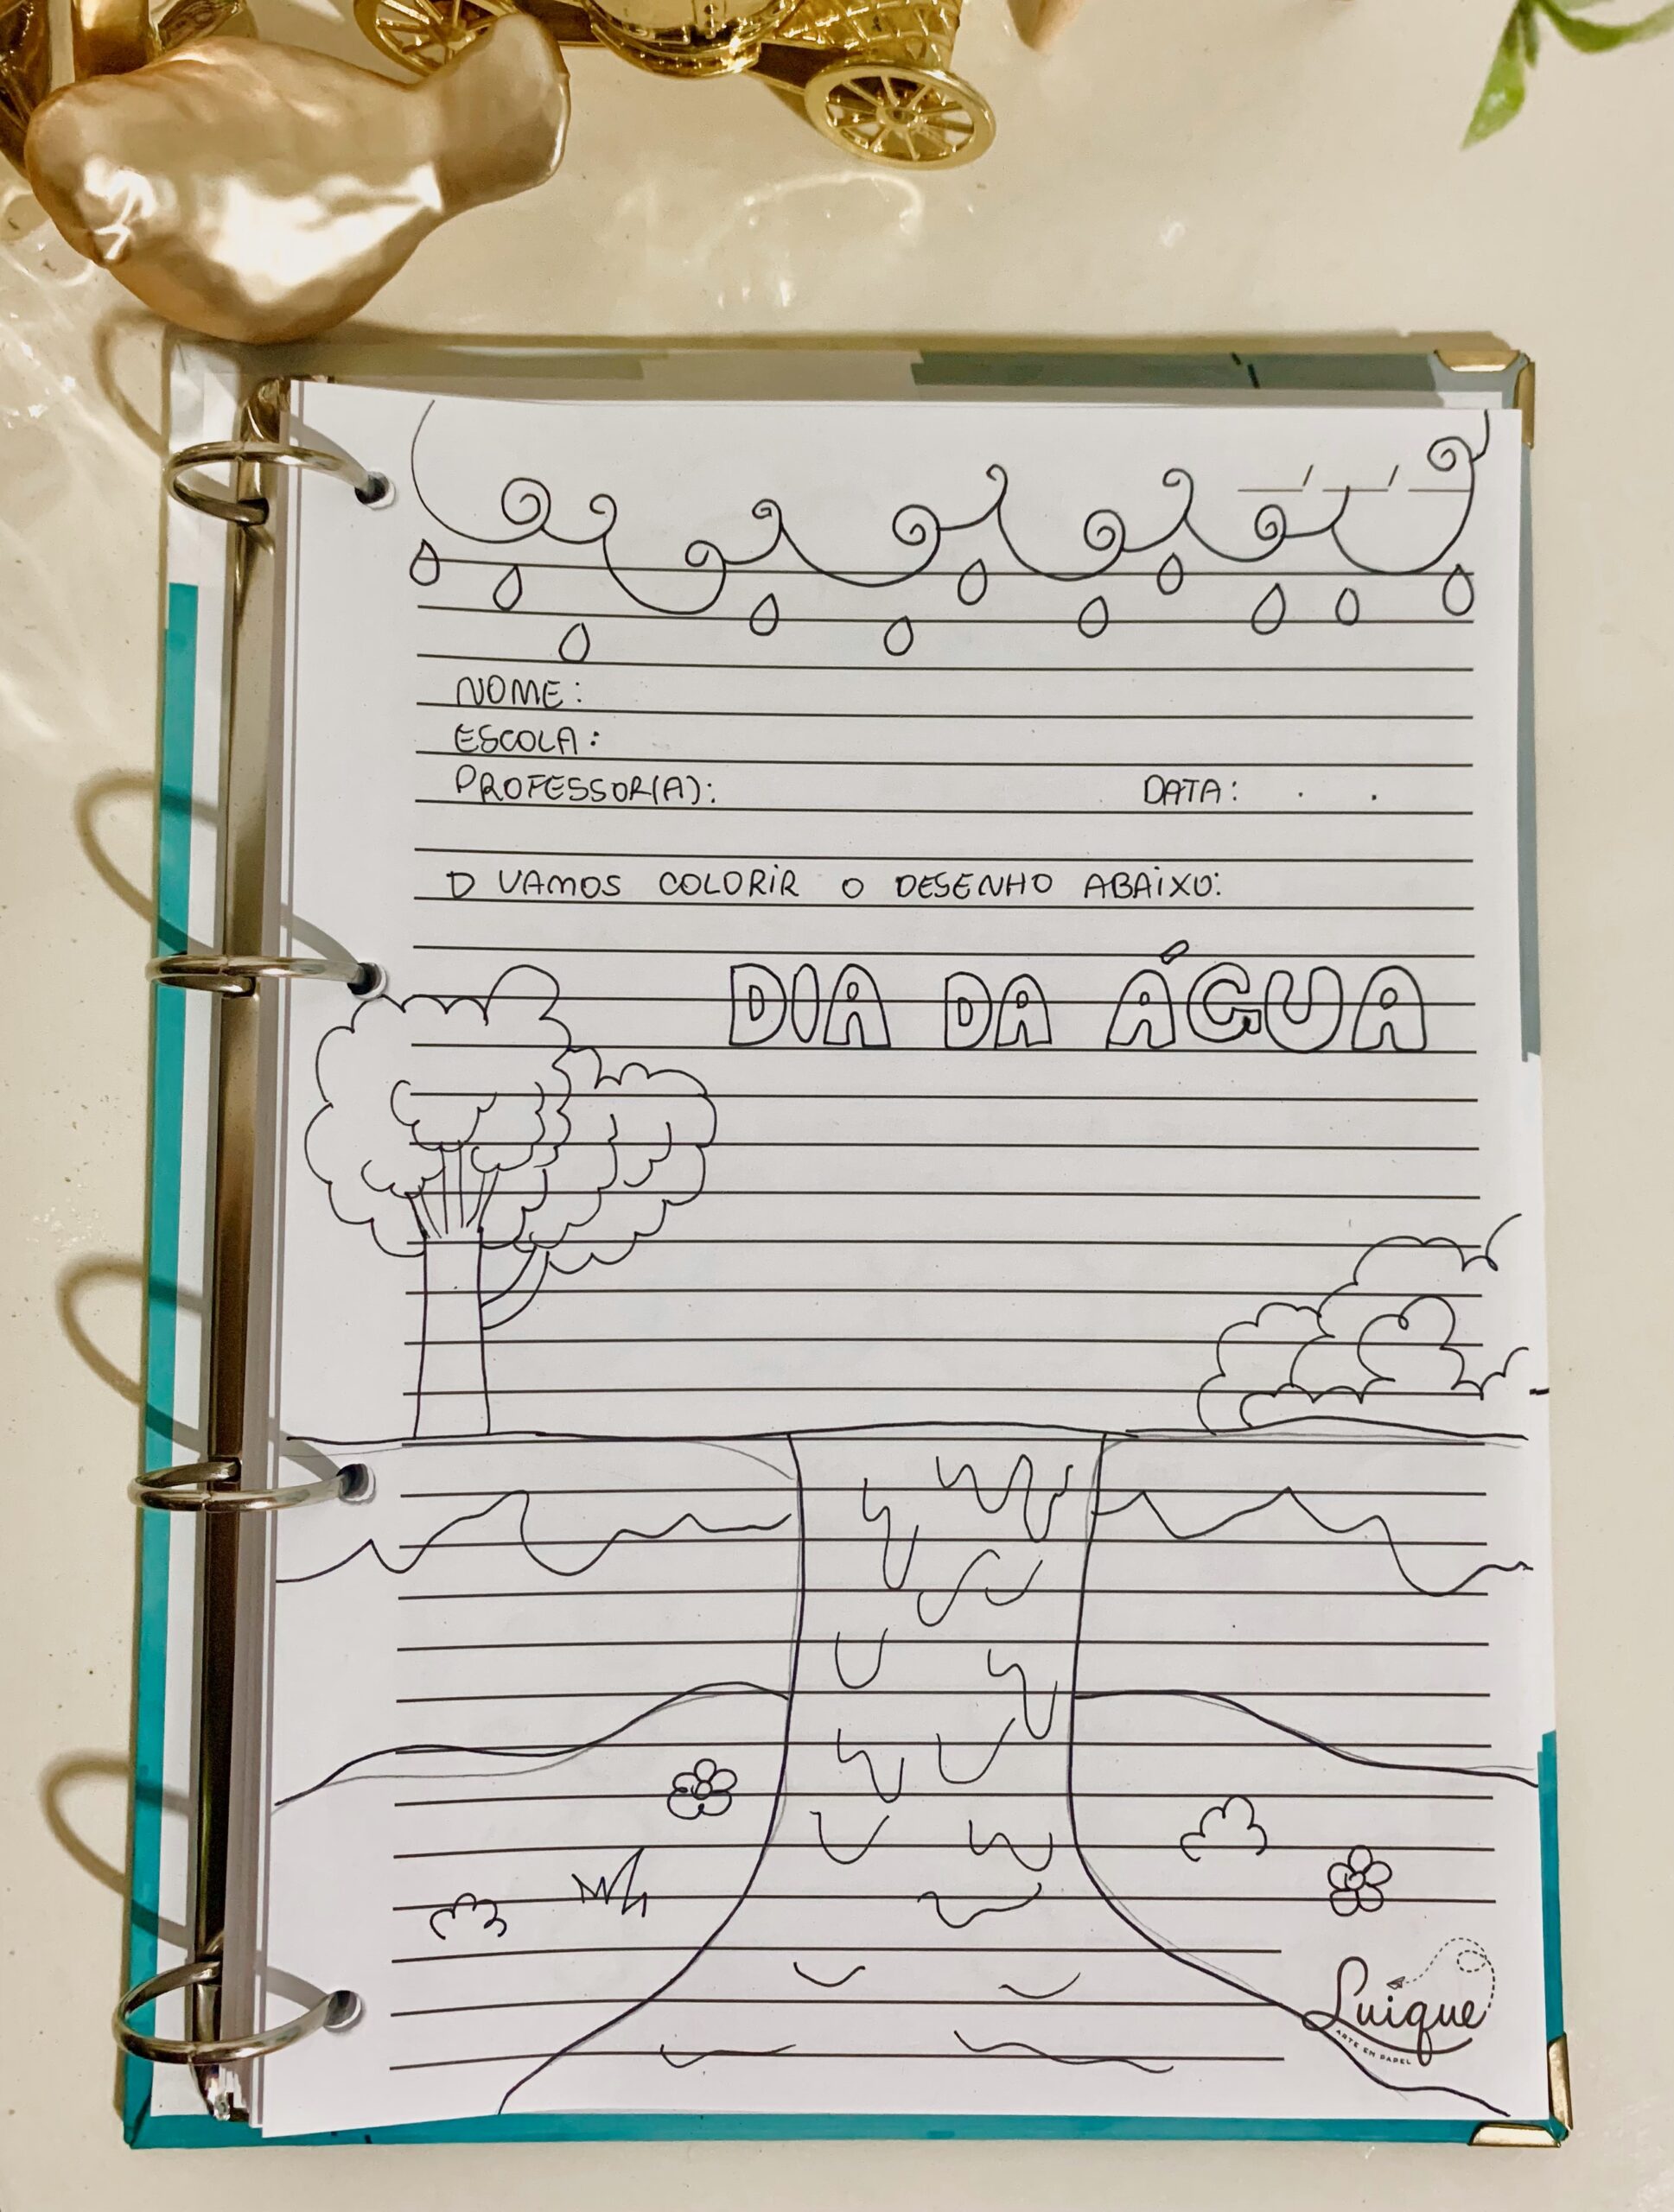 NOME:
ESCOLA:
PROFESSOR(A): DATA: . .
D VAMOS COLORIR O DESENHO ABAIXO:
DIA DA ÁGUA
Luique
ARTE EM PAPEL